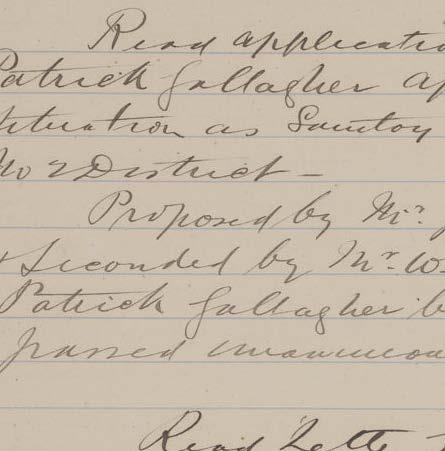 Read applicatio
Patrick Gallagher ap
situation as Sanitary
No 2 District –
Proposed by Mr. J
& Seconded by Mr. W.
Patrick Gallagher b
passed unanimous
Read Lette